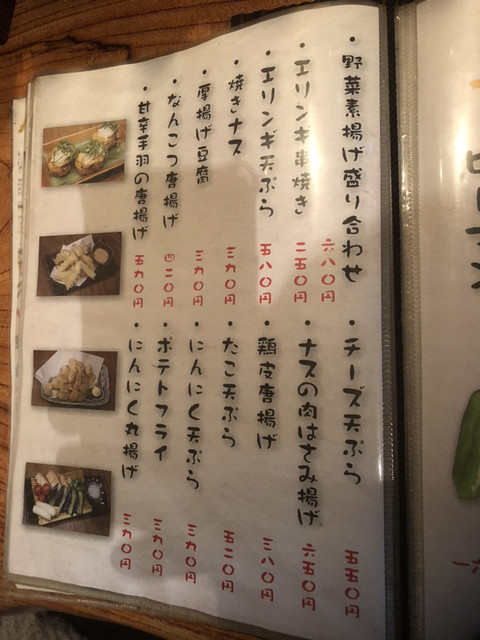 ・野菜素揚げ盛り合わせ 六八〇円
・エリンギ串焼き 二五〇円
・エリンギ天ぷら 五八〇円
・焼きナス 三九〇円
・厚揚げ豆腐 三九〇円
・なんこつ唐揚げ 四二〇円
・甘辛手羽の唐揚げ 五九〇円
・チーズ天ぷら 五五〇円
・ナスの肉はさみ揚げ 六五〇円
・鶏皮唐揚げ 三八〇円
・たこ天ぷら 五二〇円
・にんにく天ぷら 三九〇円
・ポテトフライ 三九〇円
・にんにく丸揚げ 三九〇円